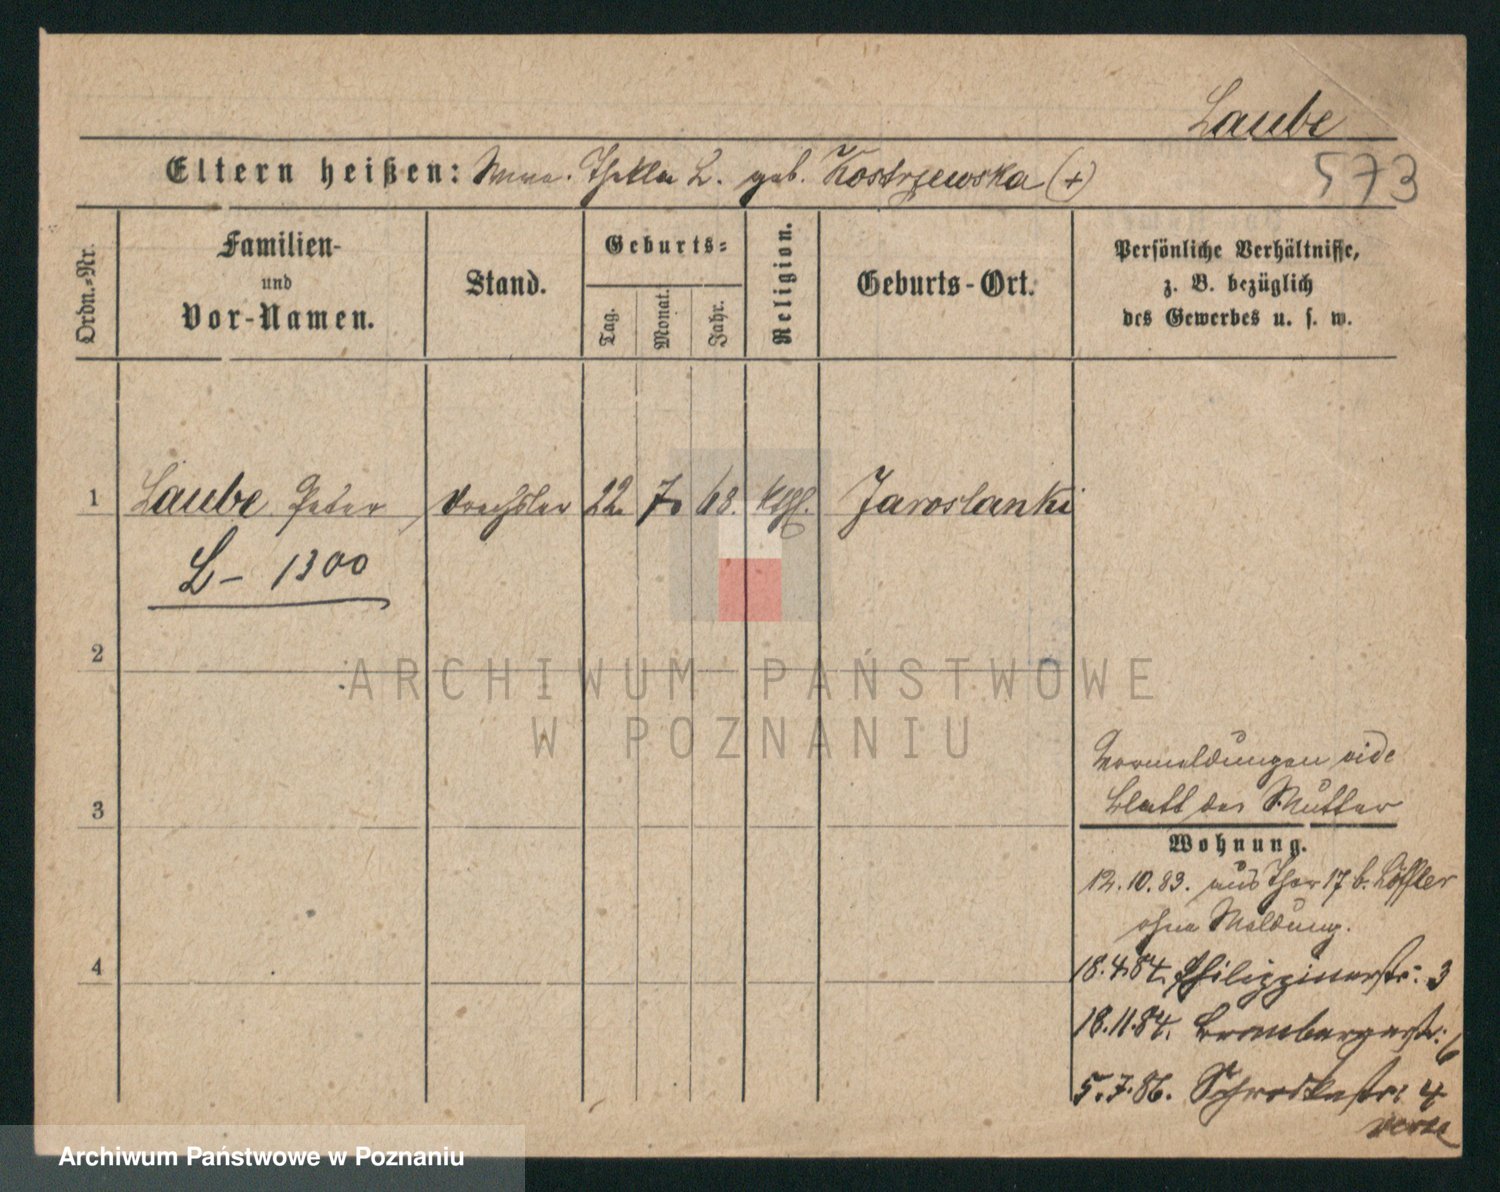 Laube
573
Eltern heißen: Thekla L. geb. Kostrzewska (+)
Ordn.-Nr.
Familien-
und
Vor-Namen.
Stand.
Geburts-
Tag.
Monat.
Jahr.
Religion.
Geburts-Ort.
Persönliche Verhältnisse,
z. B. bezüglich
des Gewerbes u. s. w.
1 Laube Peter Drechsler 22. 7. 68. kth. Jaroslanki
L- 1300
2
3
4
Vormeldungen vide
Blatt der Mutter
Wohnung.
12.10.83. aus Thor 17 b. Löffler
ohne Meldung.
18.4.84. Philippinerstr: 3
18.11.84. Brombergerstr: 6
5.7.86. Schrodkastr: 4
verte
ARCHIWUM PAŃSTWOWE
W POZNANIU
Archiwum Państwowe w Poznaniu